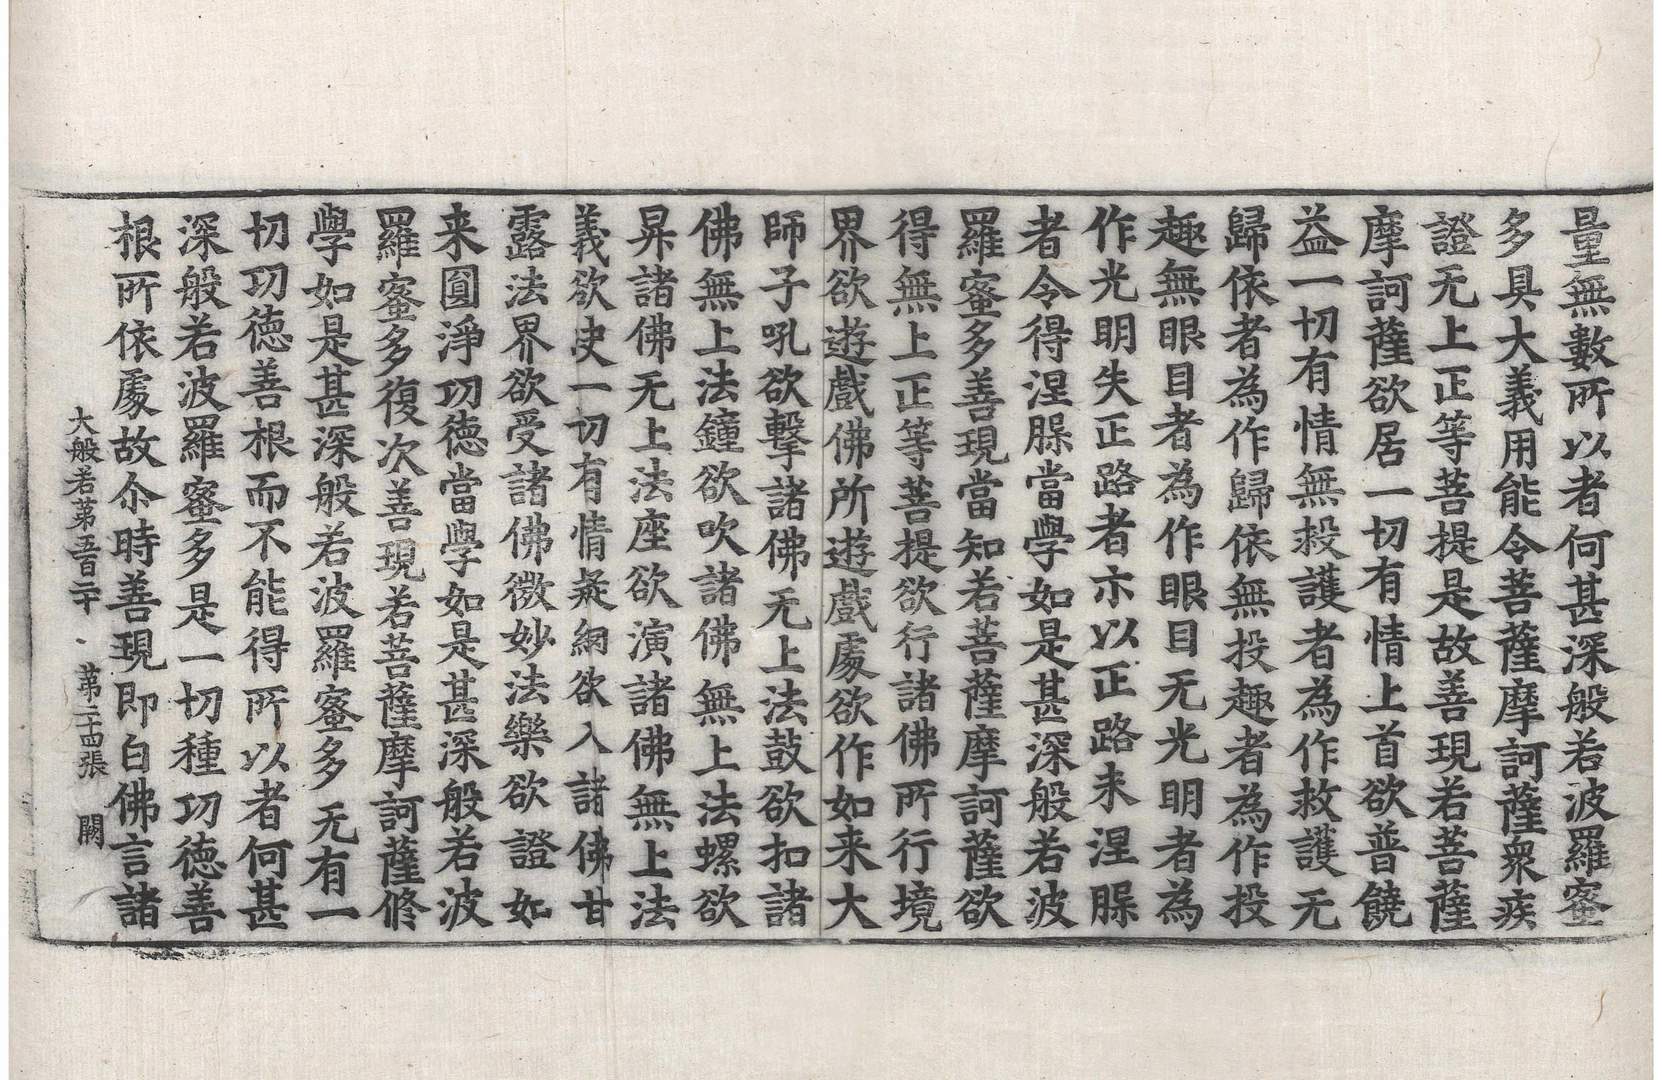 量無數所以者何甚深般若波羅蜜
多具大義用能令菩薩摩訶薩衆疾
證无上正等菩提是故善現若菩薩
摩訶薩欲居一切有情上首欲普饒
益一切有情無救護者為作救護无
歸依者為作歸依無投趣者為作投
趣無眼目者為作眼目无光明者為
作光明失正路者示以正路未涅槃
者令得涅槃當學如是甚深般若波
羅蜜多善現當知若菩薩摩訶薩欲
得無上正等菩提欲行諸佛所行境
界欲遊戲佛所遊戲處欲作如来大
師子吼欲擊諸佛无上法鼓欲扣諸
佛無上法鐘欲吹諸佛無上法螺欲
昇諸佛无上法座欲演諸佛無上法
義欲決一切有情疑網欲入諸佛甘
露法界欲受諸佛微妙法樂欲證如
来圓淨功德當學如是甚深般若波
羅蜜多復次善現若菩薩摩訶薩修
學如是甚深般若波羅蜜多无有一
切功德善根而不能得所以者何甚
深般若波羅蜜多是一切種功德善
根所依處故尒時善現即白佛言諸
大般若第五百二十　第二十四張　闕